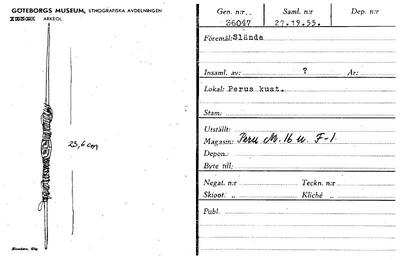 GÖTEBORGS MUSEUM, ETNOGRAFISKA AVDELNINGEN
ARKEOL.
23,6 cm
Gen. n:r.. Saml. n:r Dep. n:r
36047 27.19.55.
Föremål: Slända
Insaml. av: ? År:
Lokal: Perus kust.
Stam:
Utställt:
Magasin: Peru M. 16 u. F-1
Depon.
Byte till:
Negat. n:r Teckn. n:r
Skiopt. „ Kliché „
Publ.